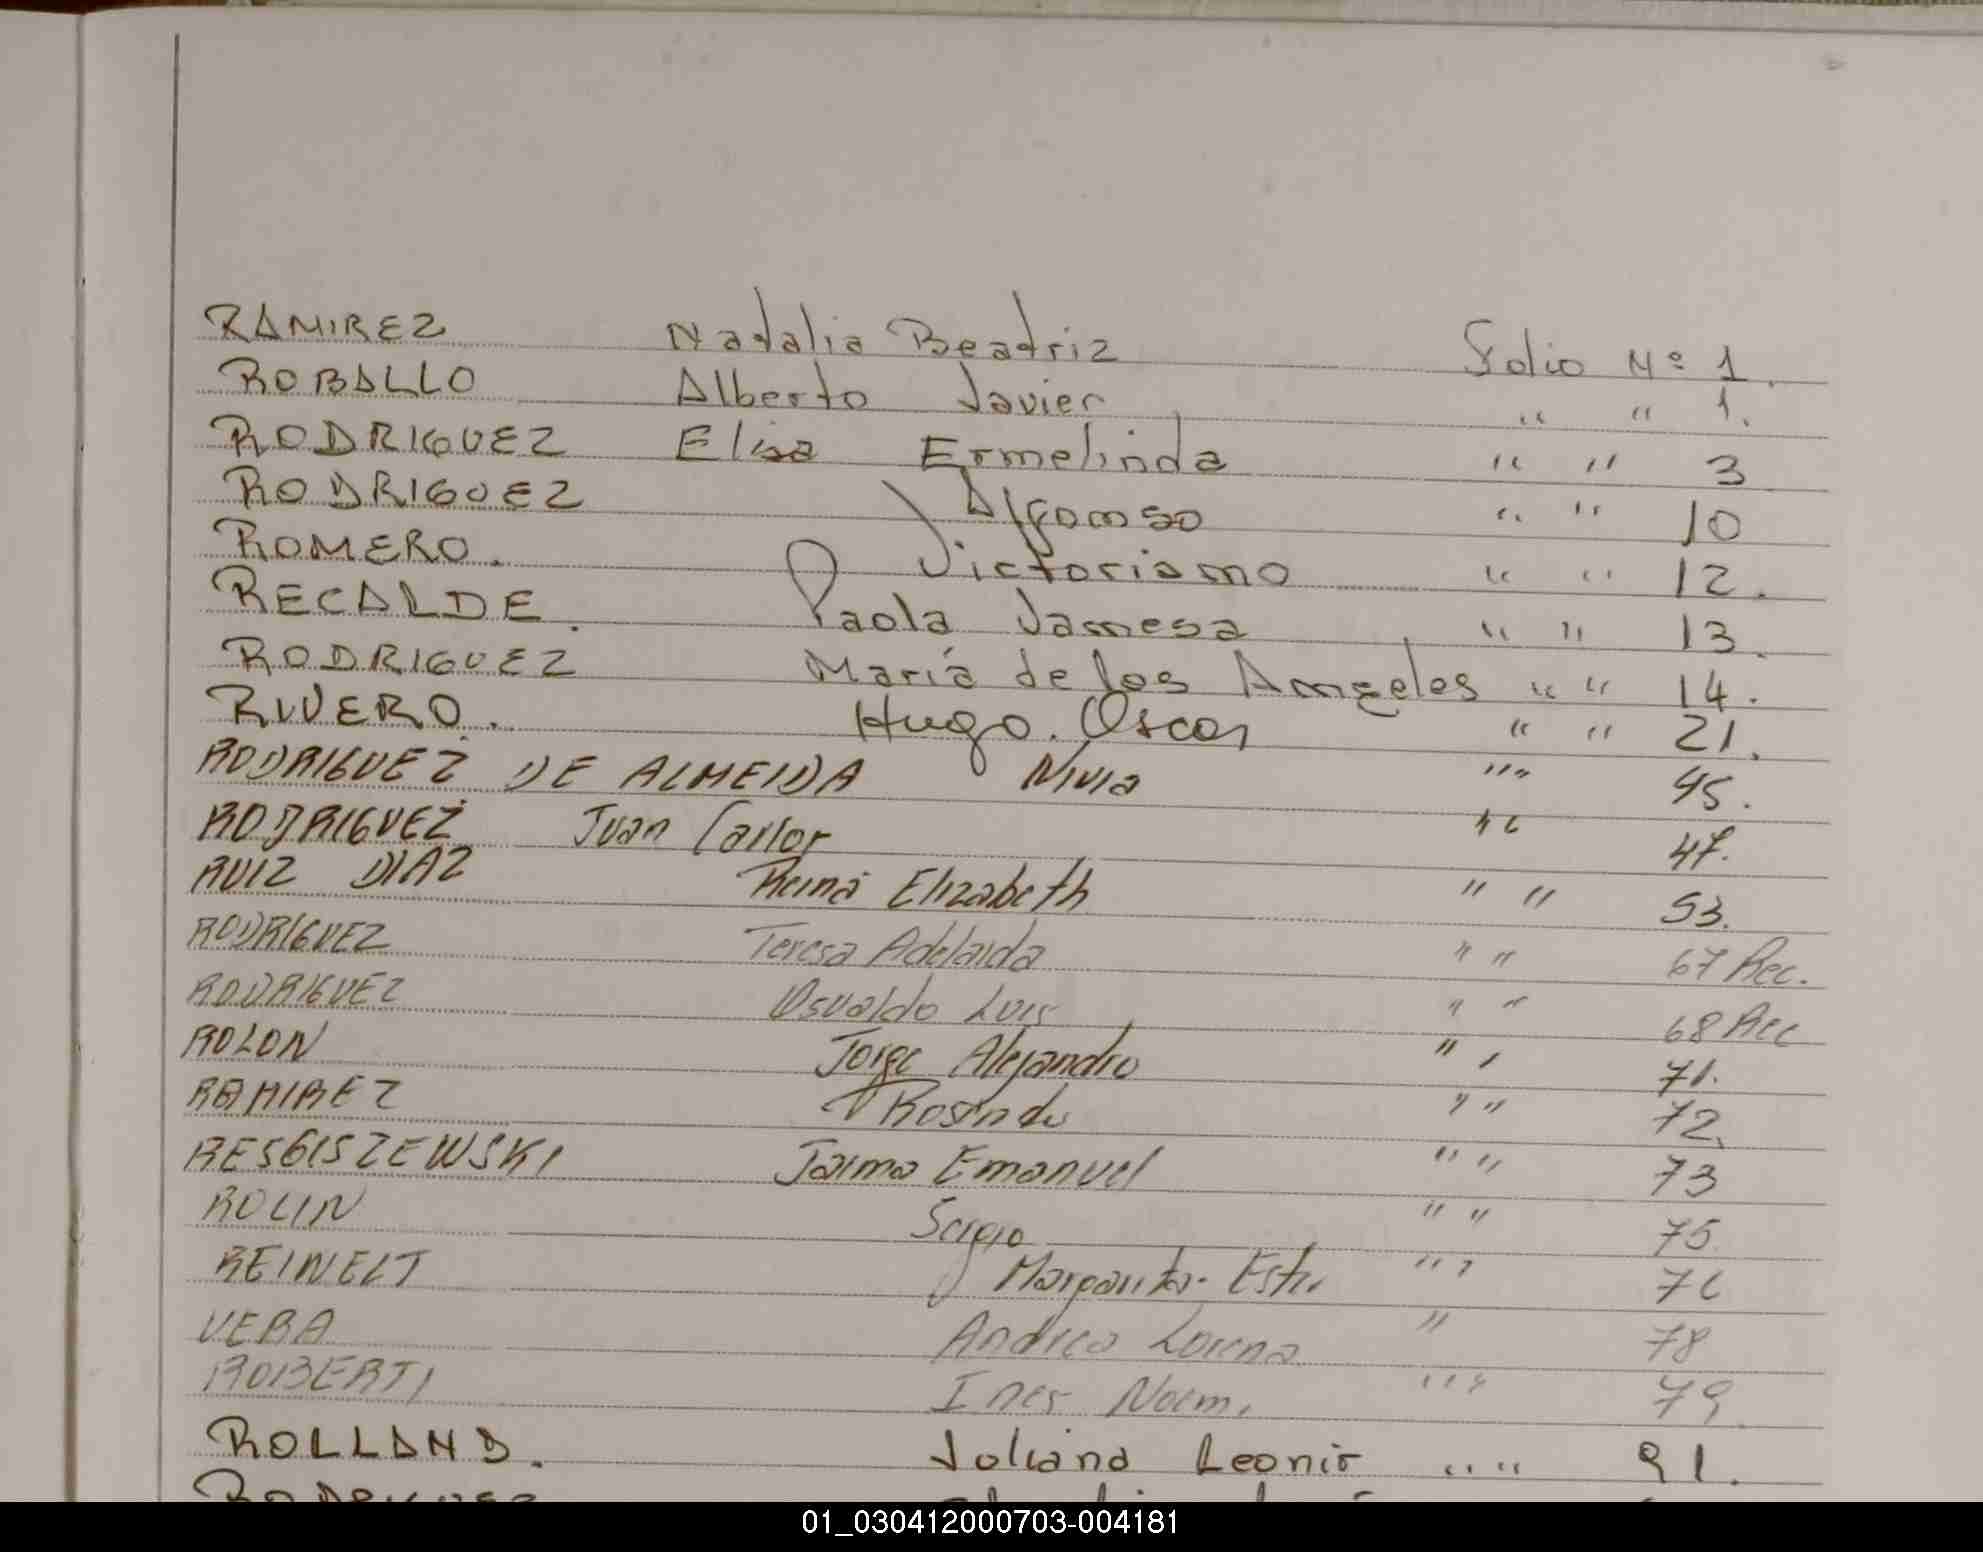 RAMIREZ Natalia Beatriz Folio Nº 1.
ROBALLO Alberto Javier " " 1.
RODRIGUEZ Elisa Ermelinda " " 3
RODRIGUEZ Alfonso " " 10
ROMERO. Victoriano " " 12.
RECALDE. Paola Vanesa " " 13.
RODRIGUEZ María de los Angeles " " 14.
RIVERO. Hugo. Oscar " " 21.
RODRIGUEZ DE ALMEIDA Nivia " " 45.
RODRIGUEZ Juan Carlos " 47.
RUIZ DIAZ Reina Elizabeth " " 53.
RODRIGUEZ Teresa Adelaida " " 67 Rec.
RODRIGUEZ Osvaldo Luis " " 68 Rec
ROLON Jorge Alejandro " " 71.
RAMIREZ Rosindo " " 72.
RESGISZEWSKI Emanuel " " 73
ROLIN Sergio " " 75
REINELT Margarita " " 76
VERA Andrea Lorena " 78
ROBERTI Ines Noemi " " 79
ROLLAND. Juliana Leonir " " 91.
01_030412000703-004181